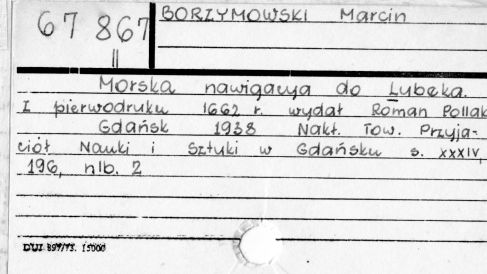 67 867
II
BORZYMOWSKI Marcin
Morska nawigacya do Lubeka.
Z pierwodruku 1662 r. wydał Roman Pollak
Gdańsk 1938 Nakł. Tow. Przyja-
ciół Nauki i Sztuki w Gdańsku s. XXXIV,
196, nlb. 2
DUJ 897/73. 15000